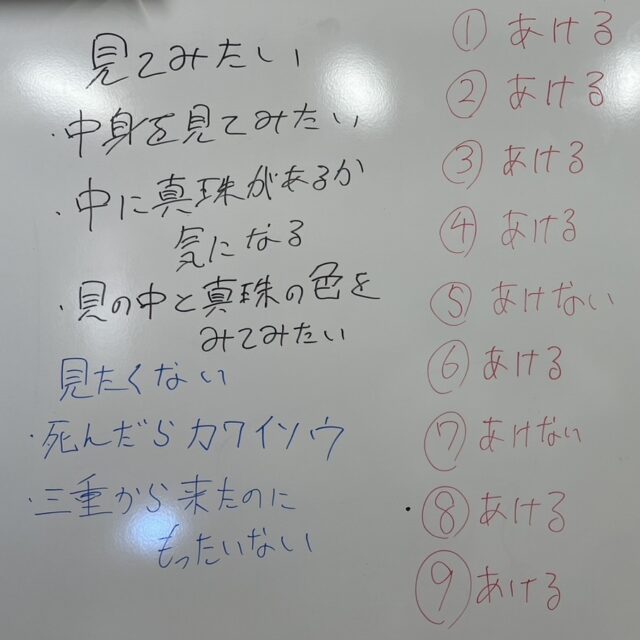 見てみたい
・中身を見てみたい
・中に真珠があるか
気になる
・貝の中と真珠の色を
みてみたい
見たくない
・死んだらカワイソウ
・三重から来たのに
もったいない
① あける
② あける
③ あける
④ あける
⑤ あけない
⑥ あける
⑦ あけない
⑧ あける
⑨ あける